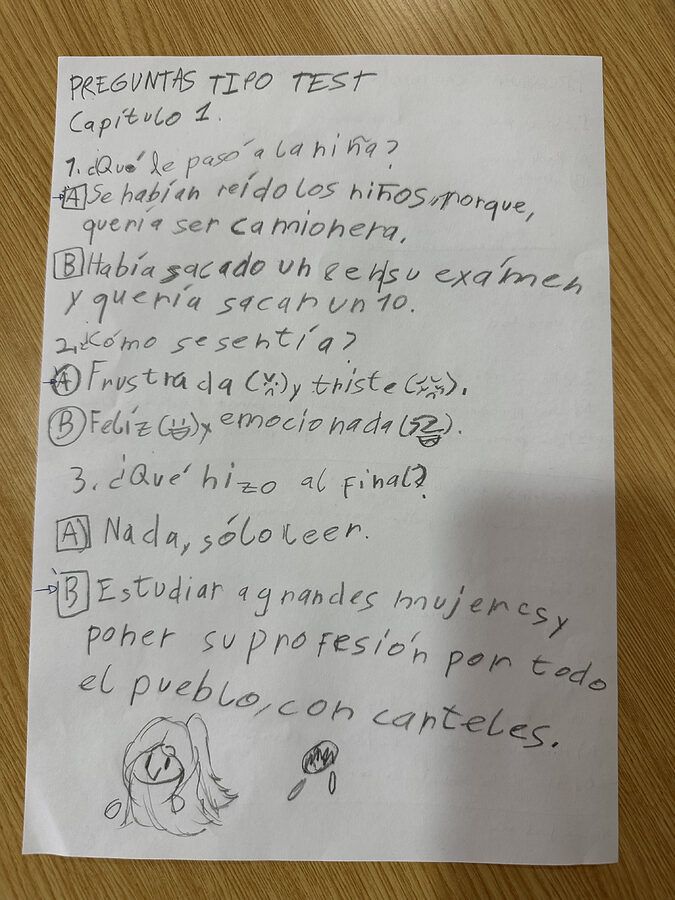 PREGUNTAS TIPO TEST
Capítulo 1.
1. ¿Qué le pasó a la niña?
A) Se habían reído los niños, porque,
quería ser camionera.
B) Había sacado un 8 en su exámen
y quería sacar un 10.
2. ¿Cómo se sentía?
A) Frustrada ( ) y triste ( ).
B) Felíz ( ) y emocionada ( ).
3. ¿Qué hizo al final?
A) Nada, sólo leer.
B) Estudiar a grandes mujeres y
poner su profesión por todo
el pueblo, con carteles.